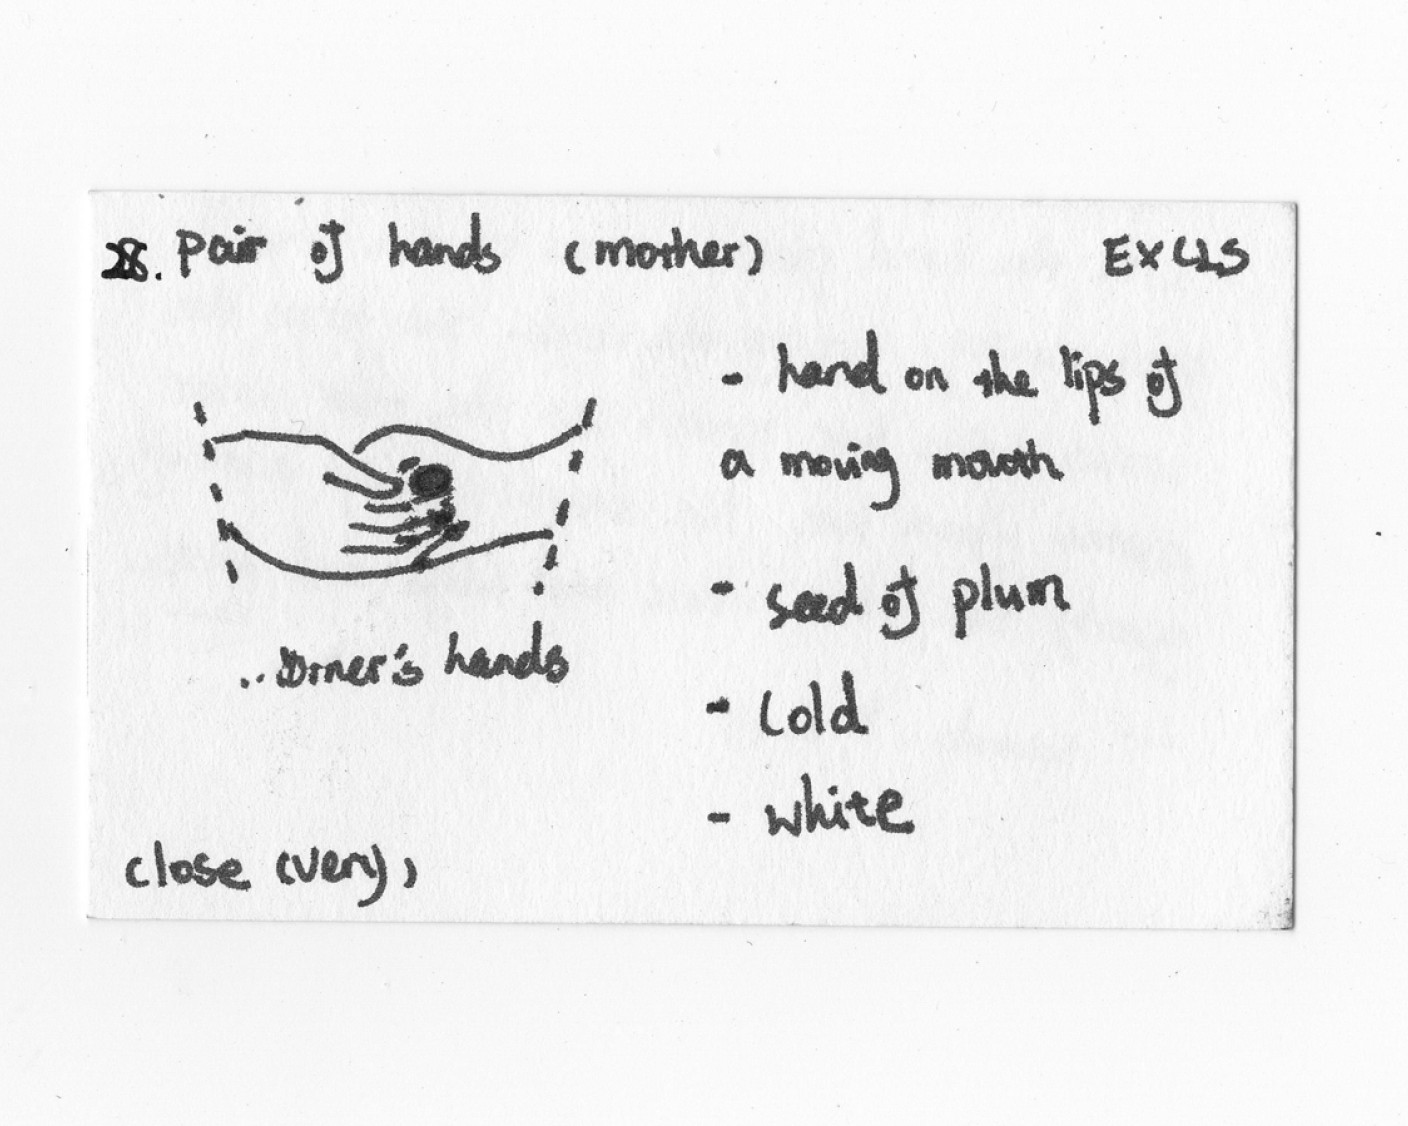 28. pair of hands (mother)
EXCLS
- hand on the lips of
a moving mouth
- seed of plum
- cold
- white
hands
close (very)